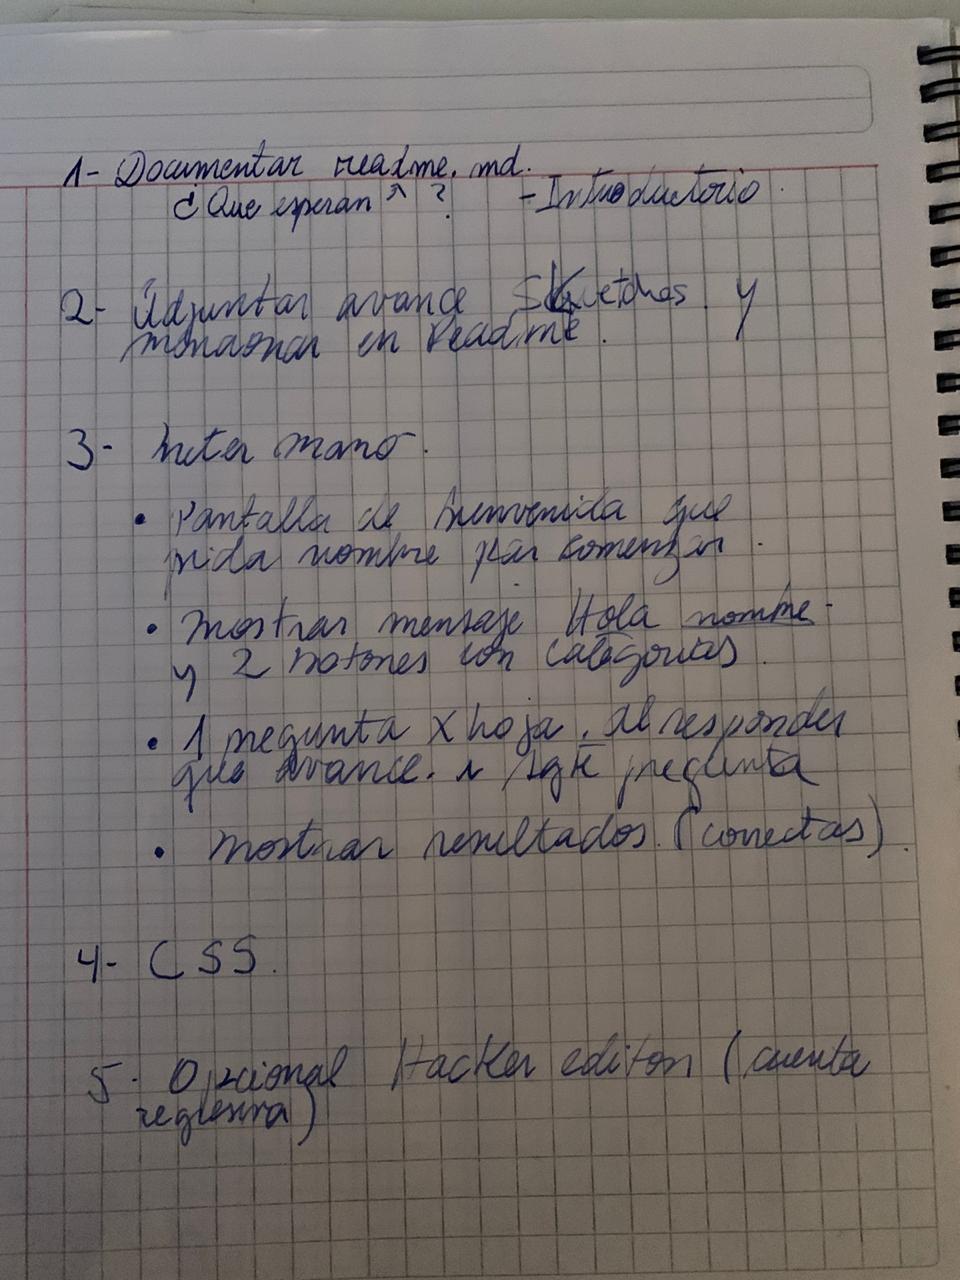 1- Documentar readme.md.
¿Que esperan ^ ? - Introductorio.
2- Adjuntar avance Sketches. y
mencionar en Readme.
3- Meter mano.
• Pantalla de bienvenida que
pida nombre par comenzar.
• mostrar mensaje Hola nombre.
y 2 botones con categorias.
• 1 pregunta X hoja, al responder
que avance. a sgte pregunta
• mostrar resultados. (correctas).
4- CSS.
5- Opcional Hacker editon (cuenta
regresiva)